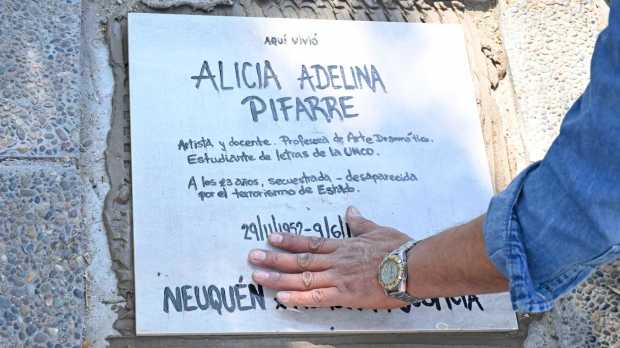 AQUÍ VIVIÓ
ALICIA ADELINA
PIFARRE
Artista y docente. Profesora de Arte Dramático.
Estudiante de letras de la UNCO.
A los 23 años, secuestrada - desaparecida
por el terrorismo de Estado.
29/11/1952-9/6/1
NEUQUÉN